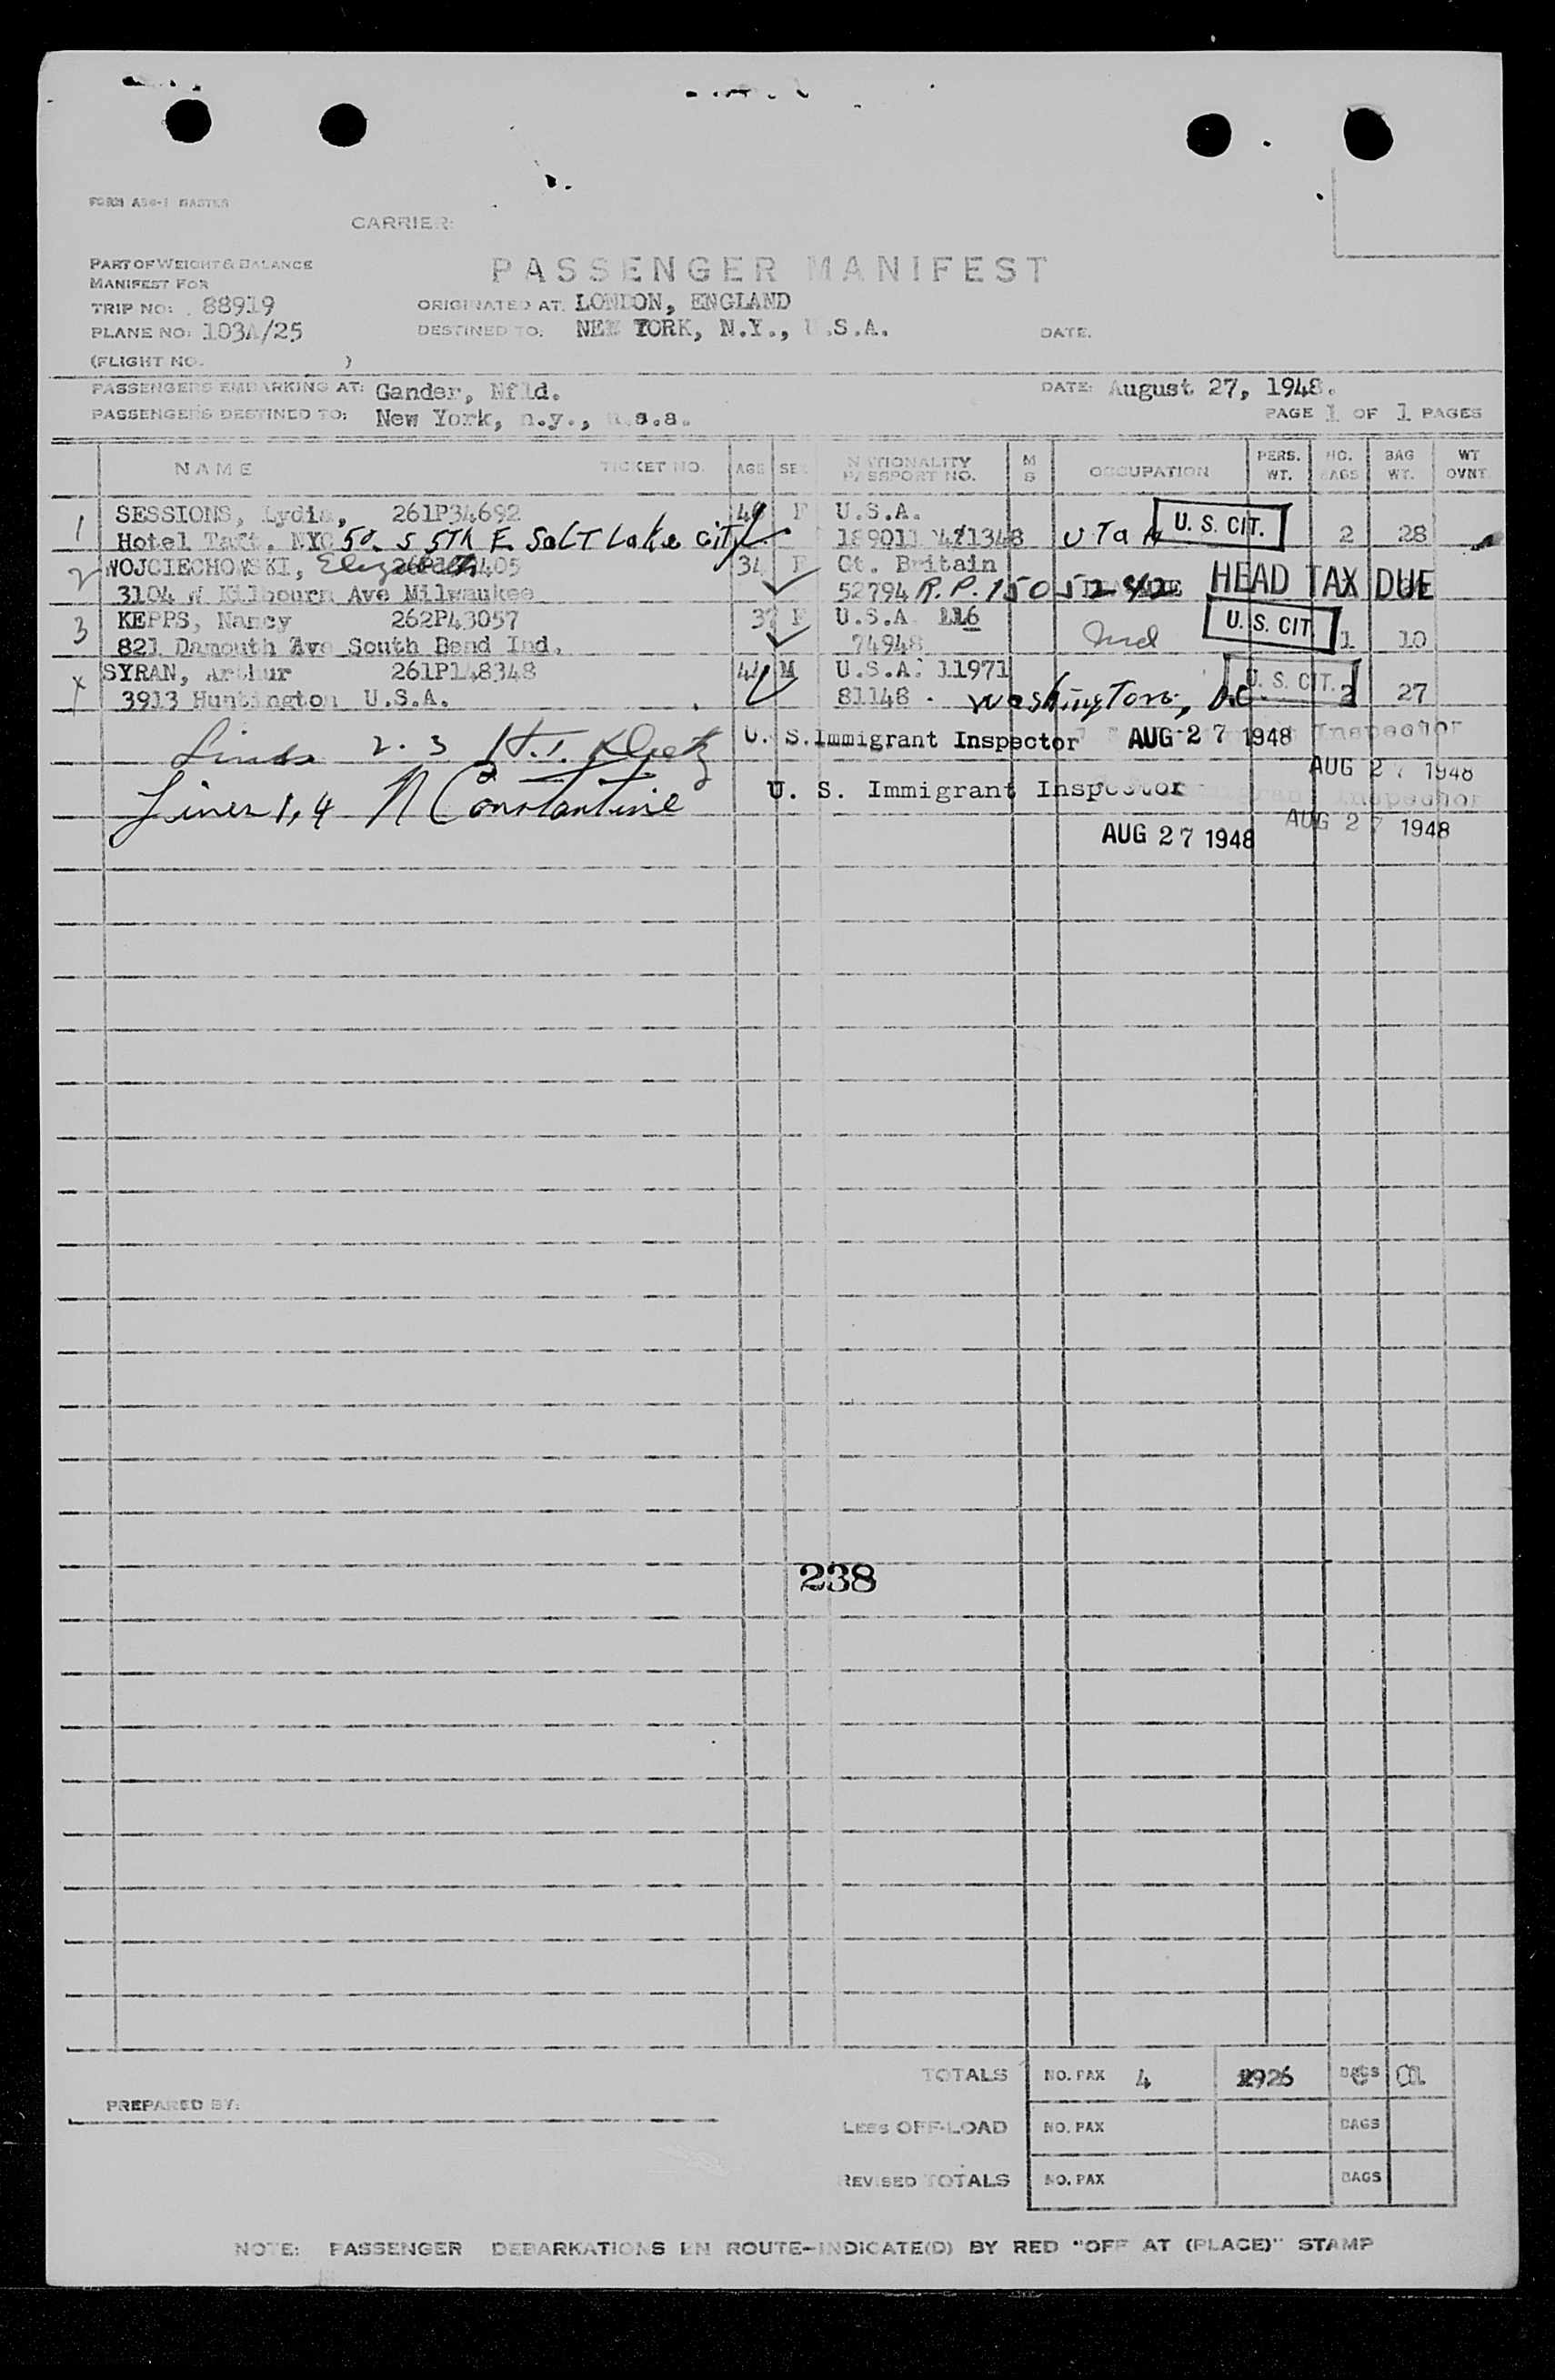 FORM
CARRIER:
PART OF WEIGHT & BALANCE
MANIFEST FOR
PASSENGER MANIFEST
TRIP NO: 88919
ORIGINATED AT: LONDON, ENGLAND
PLANE NO: 103A/25
DESTINED TO: NEW YORK, N.Y., U.S.A.
DATE:
(FLIGHT NO. )
PASSENGERS EMBARKING AT: Gander, Nfld.
DATE: August 27, 1948.
PASSENGERS DESTINED TO: New York, n.y., u.s.a.
PAGE 1 OF 1 PAGES
NAME TICKET NO. AGE SEX NATIONALITY PASSPORT NO. M S OCCUPATION PERS. WT. NO. BAGS BAG WT. WT OVNT
1 SESSIONS, Lydia, 261P34692 F U.S.A.
Hotel Taft, NYC 50 S 5Th E. SaLT Lake CiTy UTaH U. S. CIT. 2 28
2 WOJCIECHOWSKI, Elizabeth 34 F Gt. Britain
3104 W Kilbourn Ave Milwaukee 52794 R.P. 1505242 HEAD TAX DUE
3 KEPPS, Nancy 262P43057 37 F U.S.A. 116
821 Damouth Ave South Bend Ind. 74948 Ind U. S. CIT. 1 10
4 SYRAN, Arthur 261P148348 44 M U.S.A. 11971
3913 Huntington U.S.A. 81148 Washington, D.C. U. S. CIT. 2 27
Lines 2. 3 U. S. Immigrant Inspector AUG 27 1948 Inspector
AUG 27 1948
Lines 1, 4 N Constantine U. S. Immigrant Inspector Inspector
AUG 27 1948 AUG 27 1948
238
TOTALS NO. PAX 4 BAGS
PREPARED BY:
LESS OFF-LOAD NO. PAX BAGS
REVISED TOTALS NO. PAX BAGS
NOTE: PASSENGER DEBARKATIONS EN ROUTE-INDICATE(D) BY RED "OFF AT (PLACE)" STAMP